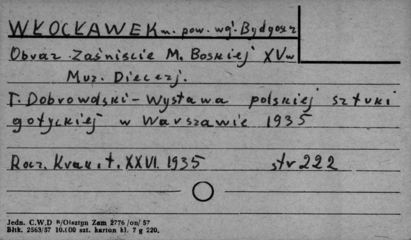 WŁOCŁAWEK m. pow. wg. Bydgoszcz
Obraz Zaśniscie M. Boskiej XV w
Muz. Diecezj.
T. Dobrowolski - Wystawa polskiej sztuki
gotyckiej w Warszawie 1935
Rocz. Krak. t. XXVI. 1935 str 222
Jedn. C.W.D n/Olsztyn Zam 2776 /on/ 57
Błtk. 2563/57 10.000 szt. karton kl. 7 g 220.